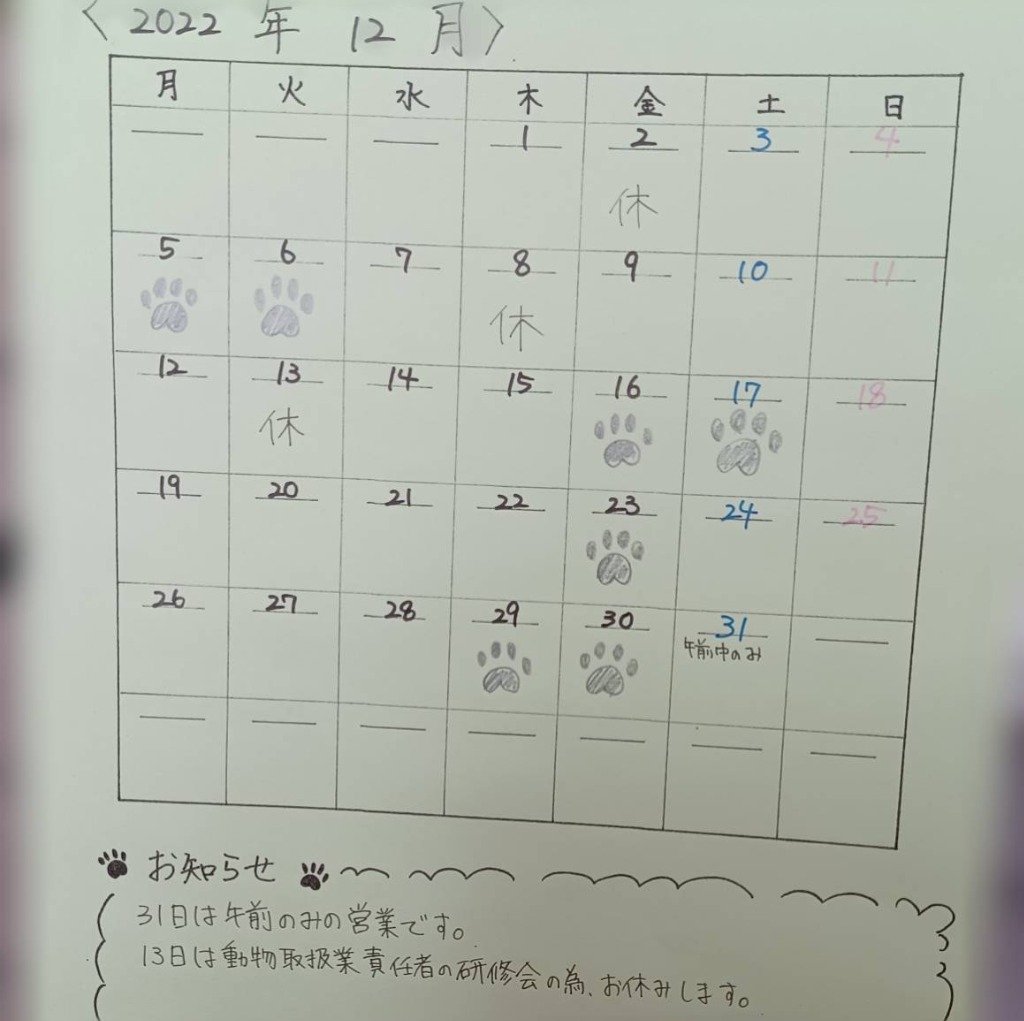 〈2022年 12月〉
月 火 水 木 金 土 日
1 2 3 4
休
5 6 7 8 9 10 11
休
12 13 14 15 16 17 18
休
19 20 21 22 23 24 25
26 27 28 29 30 31
午前中のみ
お知らせ
31日は午前のみの営業です。
13日は動物取扱業責任者の研修会の為、お休みします。